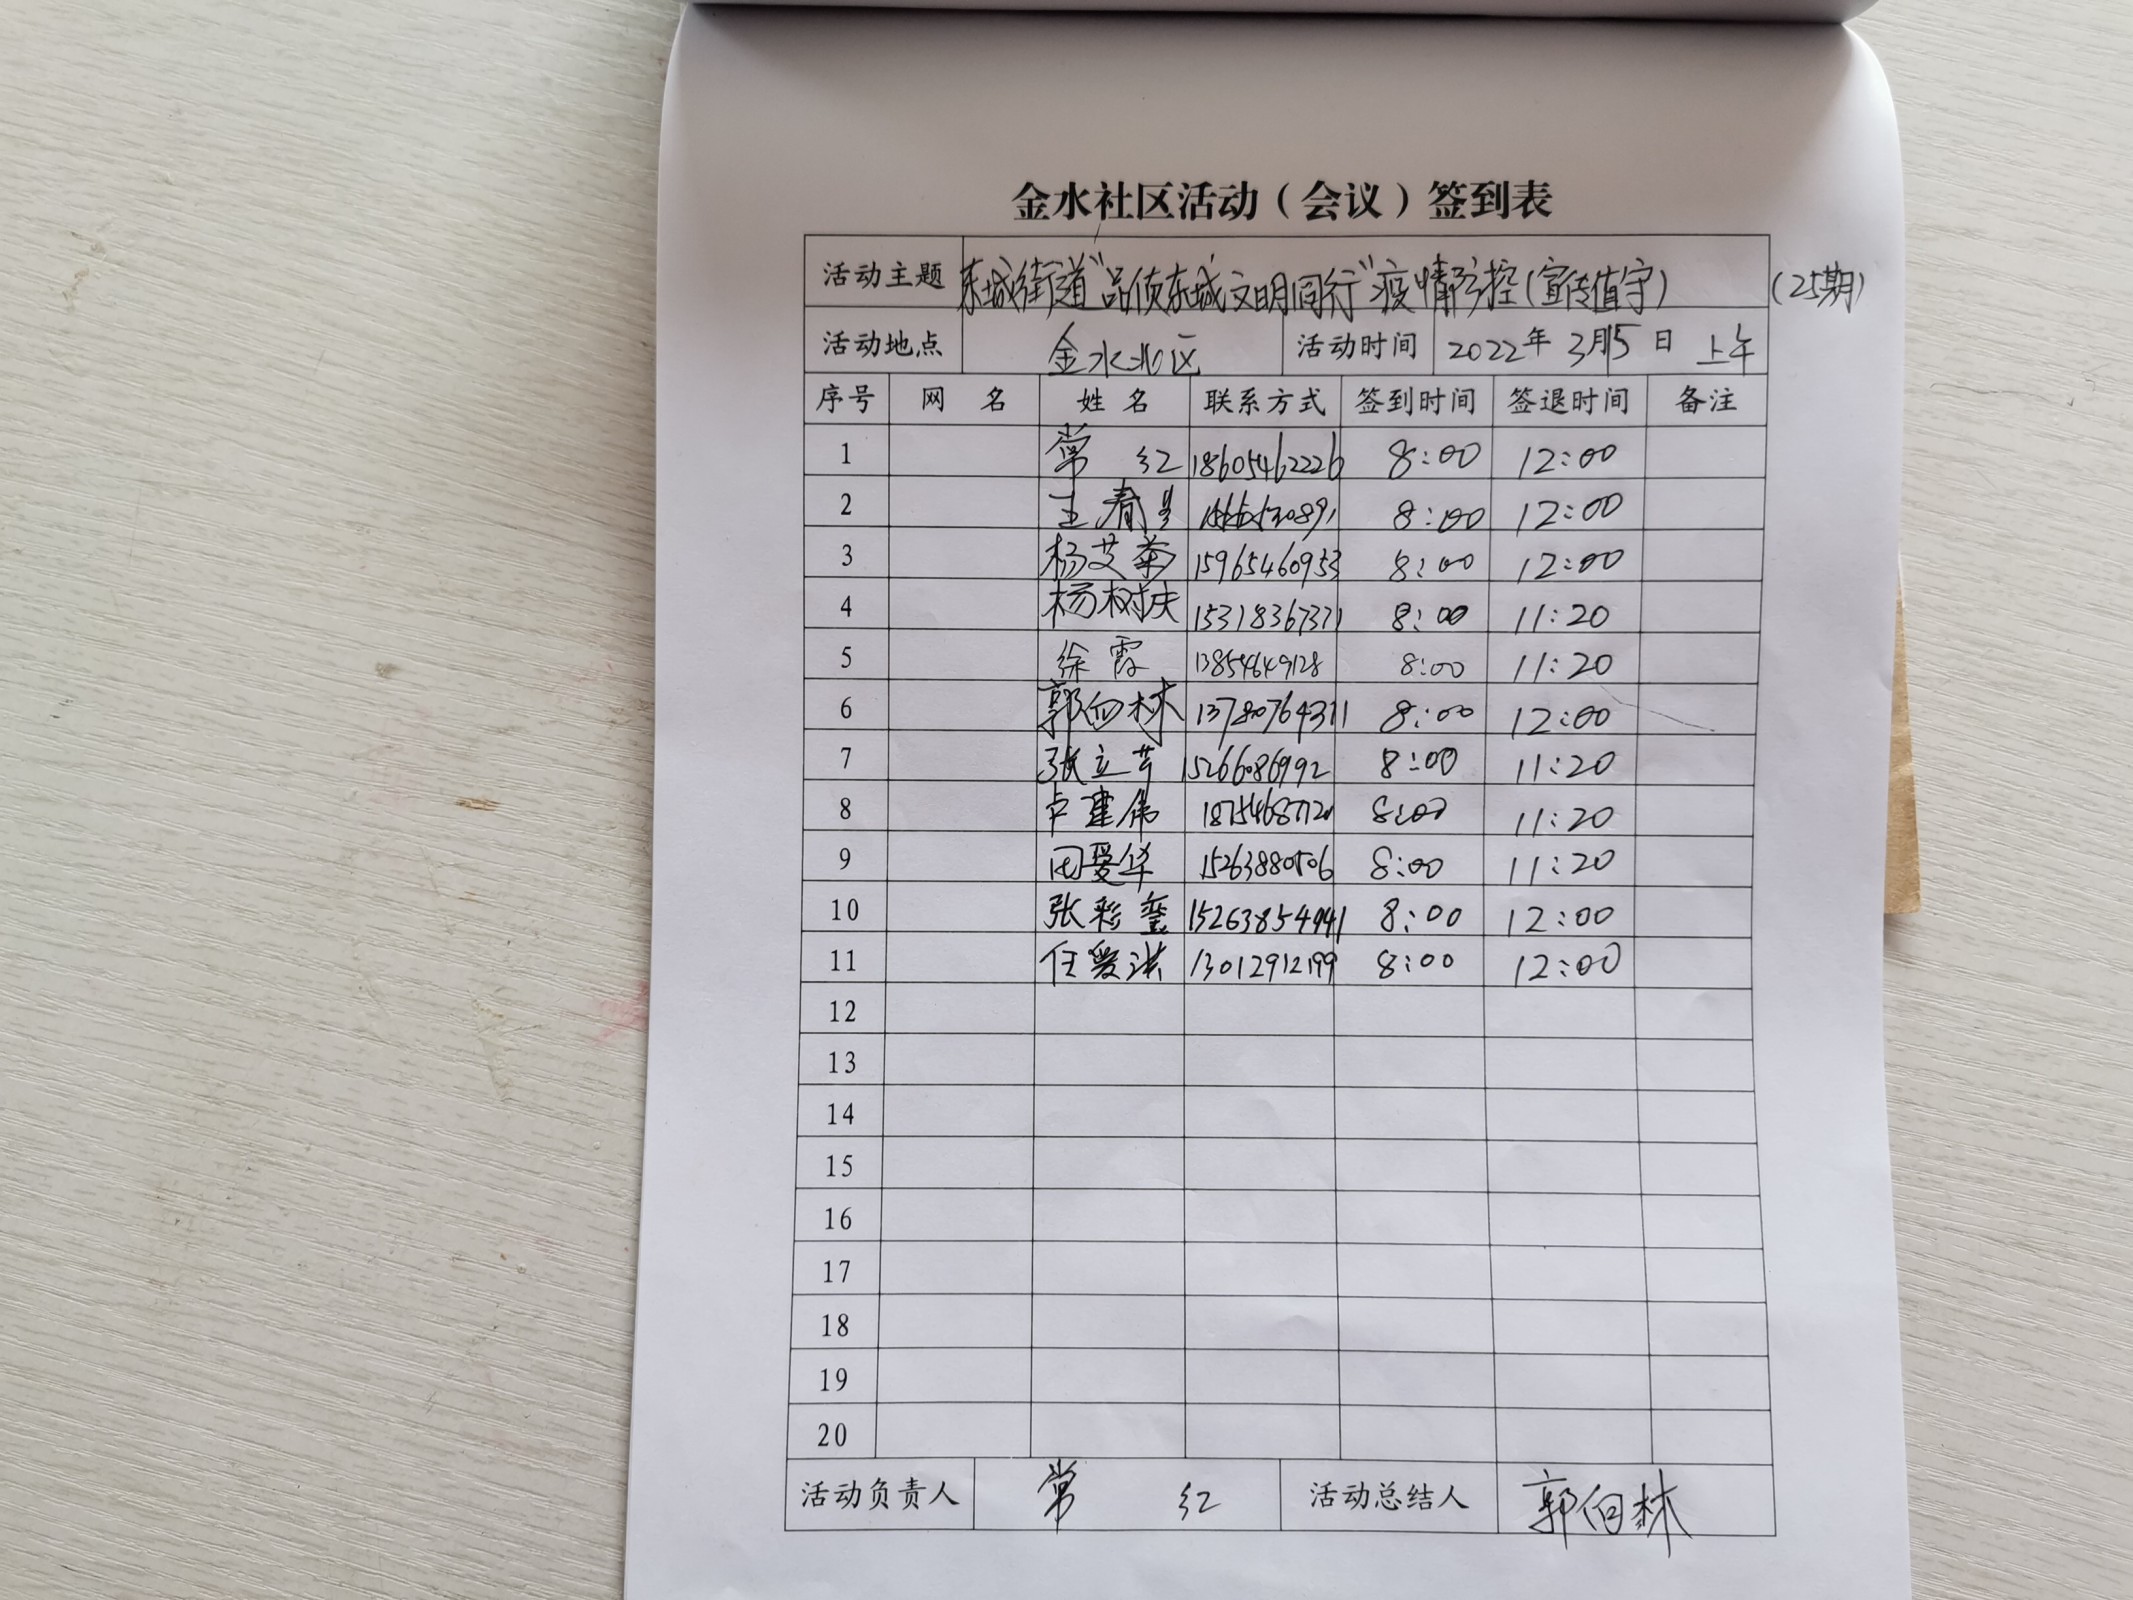 金水社区活动（会议）签到表
活动主题 东城街道"品质东城 文明同行"疫情防控(宣传值守) (25期)
活动地点 金水北区 活动时间 2022年 3月15日 上午
序号 网 名 姓 名 联系方式 签到时间 签退时间 备注
1 常 红 18605462226 8:00 12:00
2 王春 8:00 12:00
3 杨艾菊 15965460953 8:00 12:00
4 杨树 15318367371 8:00 11:20
5 徐霞 13854649128 8:00 11:20
6 郭向林 13780764311 8:00 12:00
7 张立芹 15266086992 8:00 11:20
8 卢建伟 18754687120 8:00 11:20
9 田爱华 15263880506 8:00 11:20
10 张彩玺 15263854941 8:00 12:00
11 任爱洪 13012912199 8:00 12:00
12
13
14
15
16
17
18
19
20
活动负责人 常 红 活动总结人 郭向林